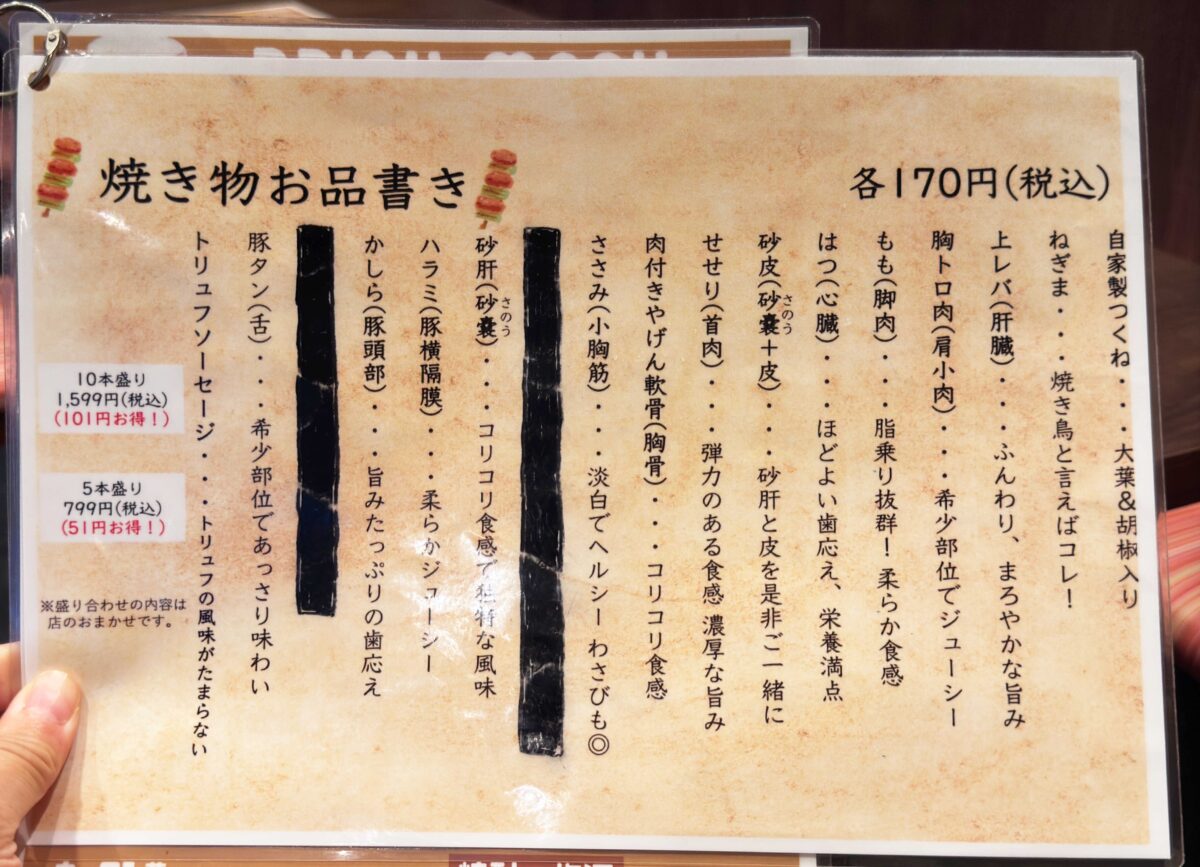 焼き物お品書き
各170円(税込)
自家製つくね・・・大葉&胡椒入り
ねぎま・・・焼き鳥と言えばコレ!
上レバ(肝臓)・・・ふんわり、まろやかな旨み
胸トロ肉(肩小肉)・・・希少部位でジューシー
もも(脚肉)・・・脂乗り抜群!柔らか食感
はつ(心臓)・・・ほどよい歯応え、栄養満点
砂皮(砂嚢+皮)・・・砂肝と皮を是非ご一緒に
さのう
せせり(首肉)・・・弾力のある食感 濃厚な旨み
肉付きやげん軟骨(胸骨)・・・コリコリ食感
ささみ(小胸筋)・・・淡白でヘルシー わさびも◎
砂肝(砂嚢)・・・コリコリ食感で独特な風味
さのう
ハラミ(豚横隔膜)・・・柔らかジューシー
かしら(豚頭部)・・・旨みたっぷりの歯応え
豚タン(舌)・・・希少部位であっさり味わい
トリュフソーセージ・・・トリュフの風味がたまらない
10本盛り
1,599円(税込)
(101円お得!)
5本盛り
799円(税込)
(51円お得!)
※盛り合わせの内容は
店のおまかせです。